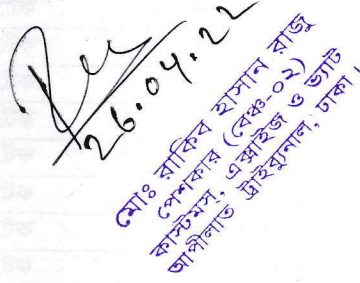 26.04.22
মোঃ রাকিব হাসান রাজু
পেশকার (বেঞ্চ-০২)
কাস্টমস্, এক্সাইজ ও ভ্যাট
আপীলাত ট্রাইব্যুনাল, ঢাকা।